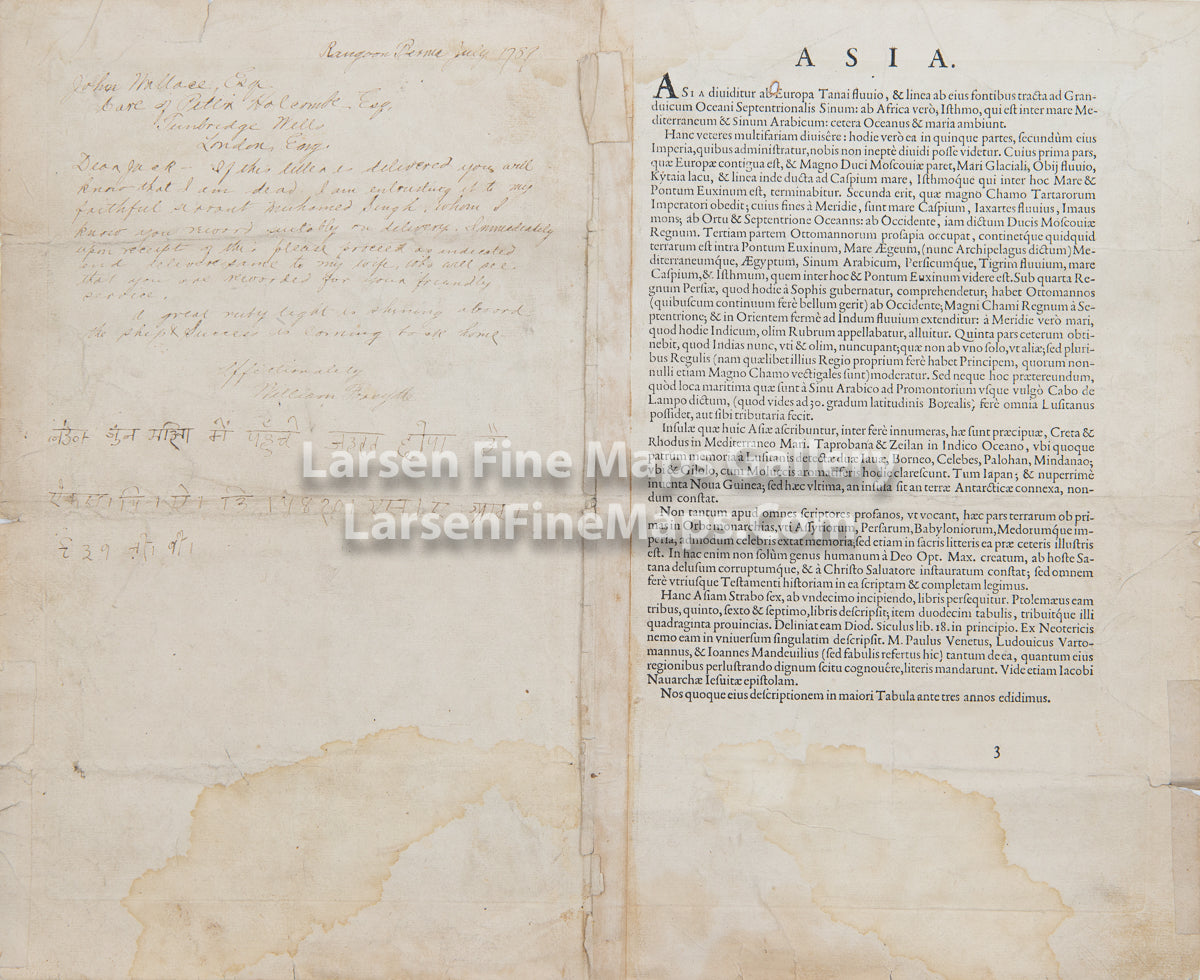 Rangoon Perma July 1757
John Wallace, Esq
Care of Peter Holcombe Esq,
Tunbridge Wells
London, Eng.
Dear Jack - If this letter is delivered you will
know that I am dead. I am entrusting it to my
faithful servant Muhamed Singh, whom I
know you reward suitably on delivery. Immediately
upon receipt of this please proceed as indicated
and deliver same to my wife, who will see
that you are rewarded for your friendly
service.
A great ruby light is shining aboard
the ship & Success is coming to ok home
Affectionately
William Forsyth
जुन में
Larsen Fine Maps Gallery
LarsenFineMaps.Com
ASIA.
ASIA diuiditur ab Europa Tanai fluuio, & linea ab eius fontibus tracta ad Gran-
duicum Oceani Septentrionalis Sinum: ab Africa verò, Isthmo, qui est inter mare Me-
diterraneum & Sinum Arabicum: cetera Oceanus & maria ambiunt.
Hanc veteres multifariam diuisêre: hodie verò ea in quinque partes, secundùm eius
Imperia, quibus administratur, nobis non ineptè diuidi posse videtur. Cuius prima pars,
quæ Europæ contigua est, & Magno Duci Moscouiæ paret, Mari Glaciali, Obij fluuio,
Kytaia lacu, & linea inde ducta ad Caspium mare, Isthmoque qui inter hoc Mare &
Pontum Euxinum est, terminabitur. Secunda erit, quæ magno Chamo Tartarorum
Imperatori obedit; cuius fines à Meridie, sunt mare Caspium, Iaxartes fluuius, Imaus
mons; ab Ortu & Septentrione Oceanus: ab Occidente, iam dictum Ducis Moscouiæ
Regnum. Tertiam partem Ottomannorum prosapia occupat, continetque quidquid
terrarum est intra Pontum Euxinum, Mare Ægeum, (nunc Archipelagus dictum) Me-
diterraneumque, Ægyptum, Sinum Arabicum, Persicumque, Tigrim fluuium, mare
Caspium, & Isthmum, quem inter hoc & Pontum Euxinum videre est. Sub quarta Re-
gnum Persiæ, quod hodie à Sophis gubernatur, comprehendetur; habet Ottomannos
(quibuscum continuum ferè bellum gerit) ab Occidente, Magni Chami Regnum à Se-
ptentrione; & in Orientem fermè ad Indum fluuium extenditur: à Meridie verò mari,
quod hodie Indicum, olim Rubrum appellabatur, alluitur. Quinta pars ceterum obti-
nebit, quod Indias nunc, vti & olim, nuncupant; quæ non ab vno solo, vt aliæ; sed pluri-
bus Regulis (nam quælibet illius Regio proprium ferè habet Principem, quorum non-
nulli etiam Magno Chamo vectigales sunt) moderatur. Sed neque hoc prætereundum,
quòd loca maritima quæ sunt à Sinu Arabico ad Promontorium vsque vulgò Cabo de
Lampo dictum, (quod vides ad 30. gradum latitudinis Borealis) ferè omnia Lusitanus
possidet, aut sibi tributaria fecit.
Insulæ quæ huic Asiæ ascribuntur, inter ferè innumeras, hæ sunt præcipuæ, Creta &
Rhodus in Mediterraneo Mari. Taprobana & Zeilan in Indico Oceano, vbi quoque
patrum memoria à Lusitanis detectæ duæ Iauæ, Borneo, Celebes, Palohan, Mindanao;
vbi & Gilolo, cum Moluccis aromatiferis hodie clarescunt. Tum Iapan; & nuperrimè
inuenta Noua Guinea; sed hæc vltima, an insula sit an terræ Antarcticæ connexa, non-
dum constat.
Non tantum apud omnes scriptores profanos, vt vocant, hæc pars terrarum ob pri-
mas in Orbe monarchias, vti Assyriorum, Persarum, Babyloniorum, Medorumque im-
peria, admodum celebris extat memoria, sed etiam in sacris litteris ea præ ceteris illustris
est. In hac enim non solùm genus humanum à Deo Opt. Max. creatum, ab hoste Sa-
tana delusum corruptumque, & à Christo Saluatore instauratum constat; sed omnem
ferè vtriusque Testamenti historiam in ea scriptam & completam legimus.
Hanc Asiam Strabo sex, ab vndecimo incipiendo, libris persequitur. Ptolemæus eam
tribus, quinto, sexto & septimo, libris descripsit; item duodecim tabulis, tribuitque illi
quadraginta prouincias. Deliniat eam Diod. Siculus lib. 18. in principio. Ex Neotericis
nemo eam in vniuersum singulatim descripsit. M. Paulus Venetus, Ludouicus Varto-
mannus, & Ioannes Mandeuilius (sed fabulis refertus hic) tantum de ea, quantum eius
regionibus perlustrando dignum scitu cognouére, literis mandarunt. Vide etiam Iacobi
Nauarchæ Iesuitæ epistolam.
Nos quoque eius descriptionem in maiori Tabula ante tres annos edidimus.
3